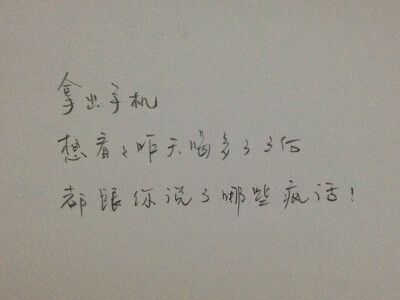 拿出手机
想看看昨天喝多了
都跟你说了哪些疯话!